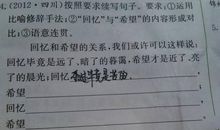 4.(2012·四川)按照要求续写句子。要求:①运用
比喻修辞手法;②“回忆”与“希望”的内容形成对
比;③语意连贯。
回忆和希望的关系,我们或许可以这样说:
回忆毕竟是远了、暗了的暮霭,希望才是近了、亮
了的晨光;回忆毕竟是
希望
回忆
希望